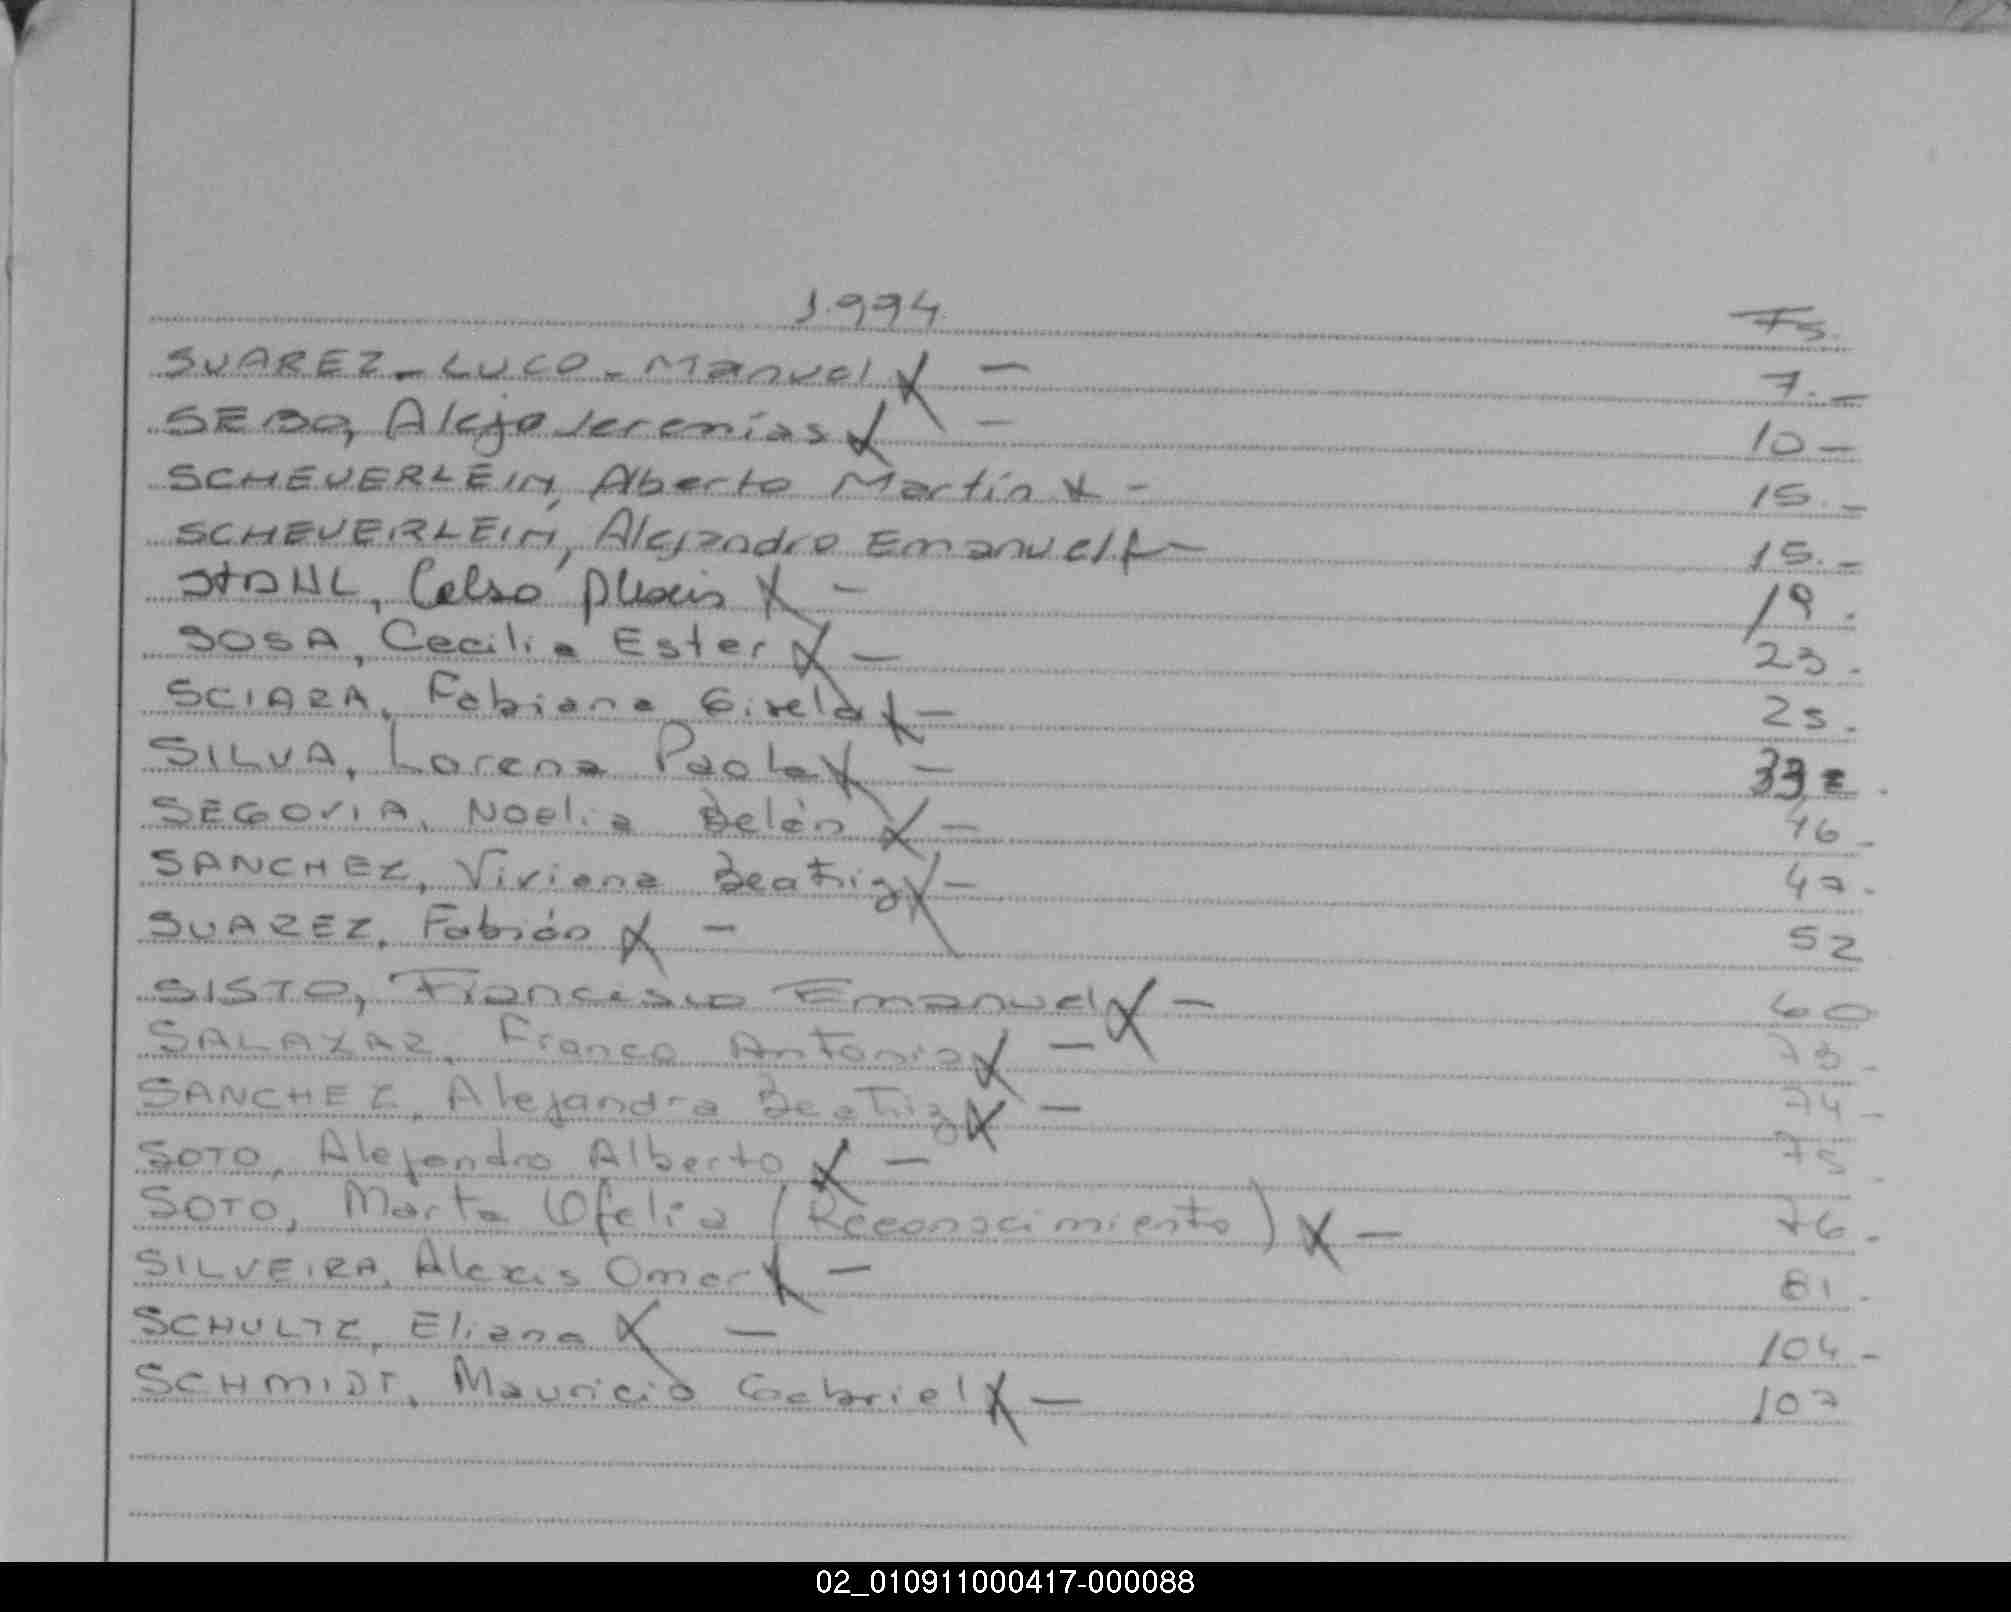 1.994 Fs.
SUAREZ - LUCO - Manuel X — 7. —
SEBO, Alejo Jeremías X — 10 —
SCHEUERLEIN, Alberto Martín X — 15. —
SCHEUERLEIN, Alejandro Emanuel X — 15. —
STAHL, Celso Alexis X — 19.
SOSA, Cecilia Ester X — 23.
SCIARA, Fabiana Gisela X — 25.
SILVA, Lorena Paola X — 33
SEGOVIA, Noelia Belén X — 46 —
SANCHEZ, Viviana Beatriz X — 47.
SUAREZ, Fabián X — 52
SISTO, Francesco Emanuel X — 60
SALAZAR, Franco Antonio X — 73 —
SANCHEZ, Alejandra Beatriz X — 74 —
SOTO, Alejandro Alberto X — 75 —
SOTO, Marta Ofelia (Reconocimiento) X — 76.
SILVEIRA, Alexis Omar X — 81.
SCHULTZ, Eliana X — 104 —
SCHMIDT, Mauricio Gabriel X — 107
02_010911000417-000088